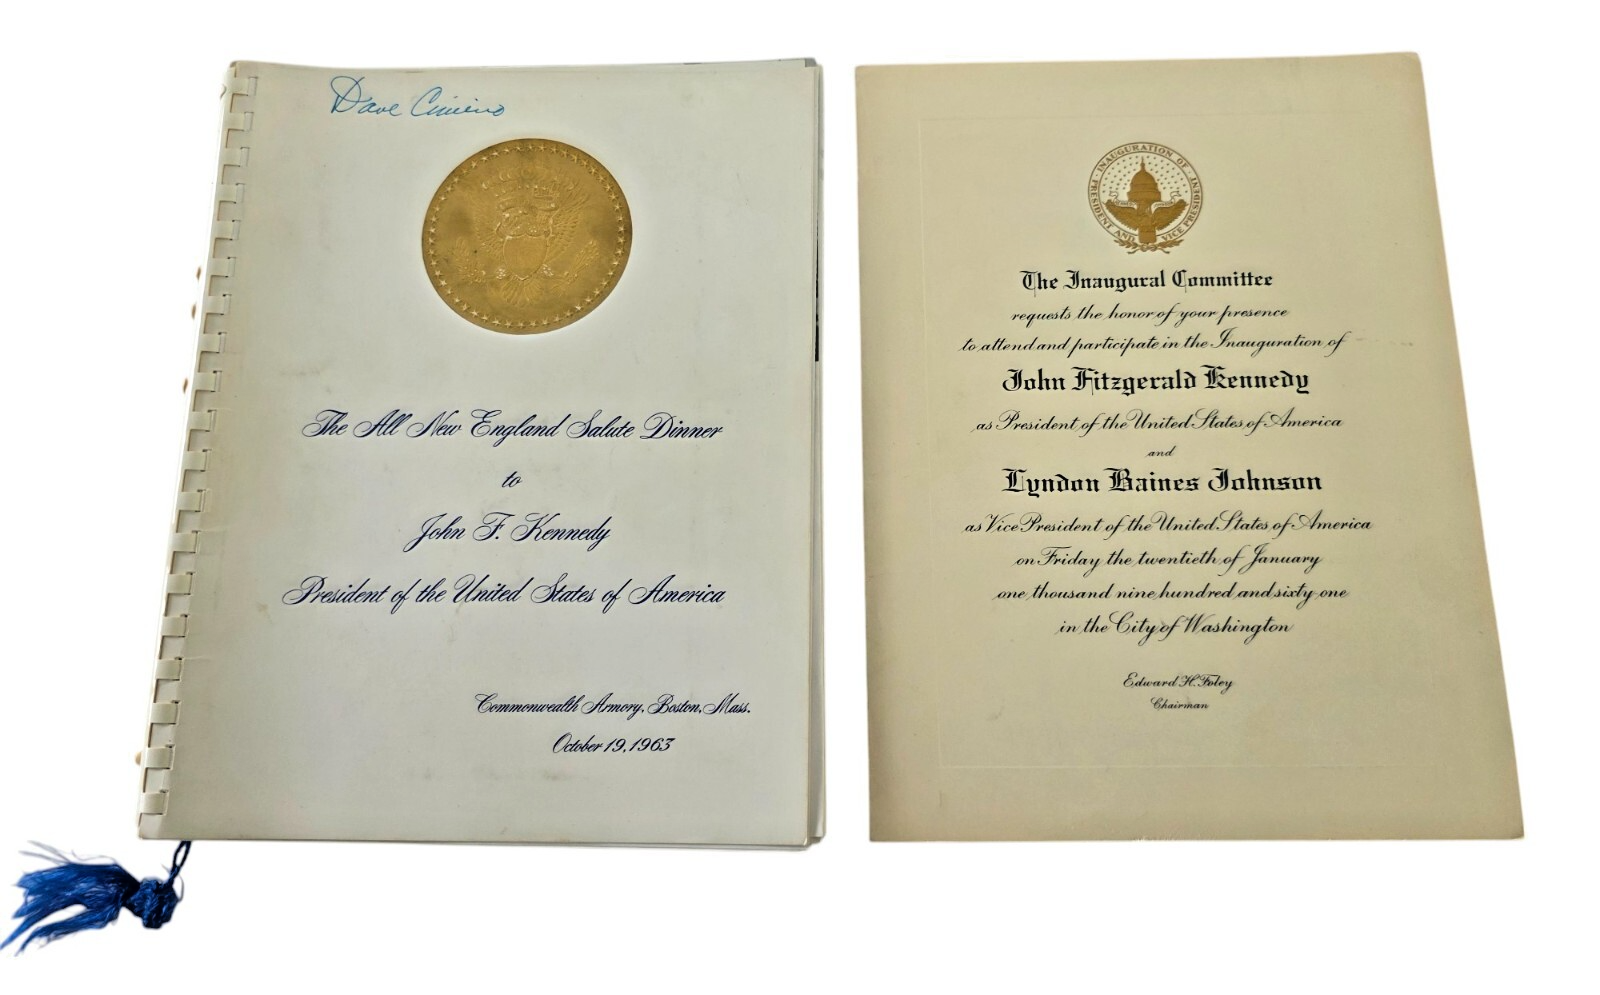 Dave Cimino
The All New England Salute Dinner
to
John F. Kennedy
President of the United States of America
Commonwealth Armory, Boston, Mass.
October 19, 1963
INAUGURATION OF PRESIDENT AND VICE PRESIDENT
The Inaugural Committee
requests the honor of your presence
to attend and participate in the Inauguration of
John Fitzgerald Kennedy
as President of the United States of America
and
Lyndon Baines Johnson
as Vice President of the United States of America
on Friday the twentieth of January
one thousand nine hundred and sixty one
in the City of Washington
Edward H. Foley
Chairman